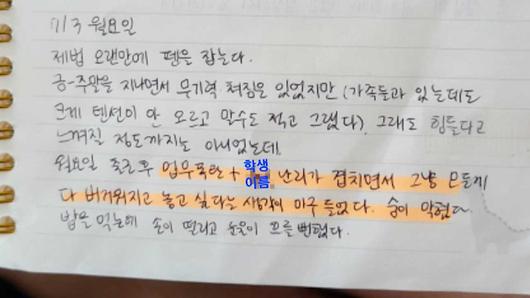 7/3 월요일
제법 오랜만에 펜을 잡는다.
금-주말을 지나면서 무기력 쳐짐은 있었지만 (가족들과 있는데도
크게 텐션이 안 오르고 말수도 적고 그랬다), 그래도 힘들다고
느껴질 정도까지는 아니었는데
월요일 출근 후 업무폭탄 + 학생 이름 난리가 겹치면서 그냥 모든게
다 버거워지고 놓고 싶다는 생각이 마구 들었다. 숨이 막혔다.
밥을 먹는데 손이 떨리고 눈물이 흐를 뻔했다.